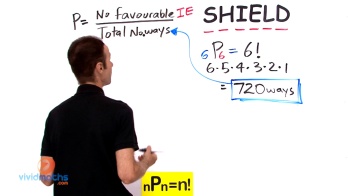 P = No favourable IE
Total No ways
SHIELD
6P6 = 6!
6·5·4·3·2·1
= 720 ways
nPn=n!
vividmaths
.com